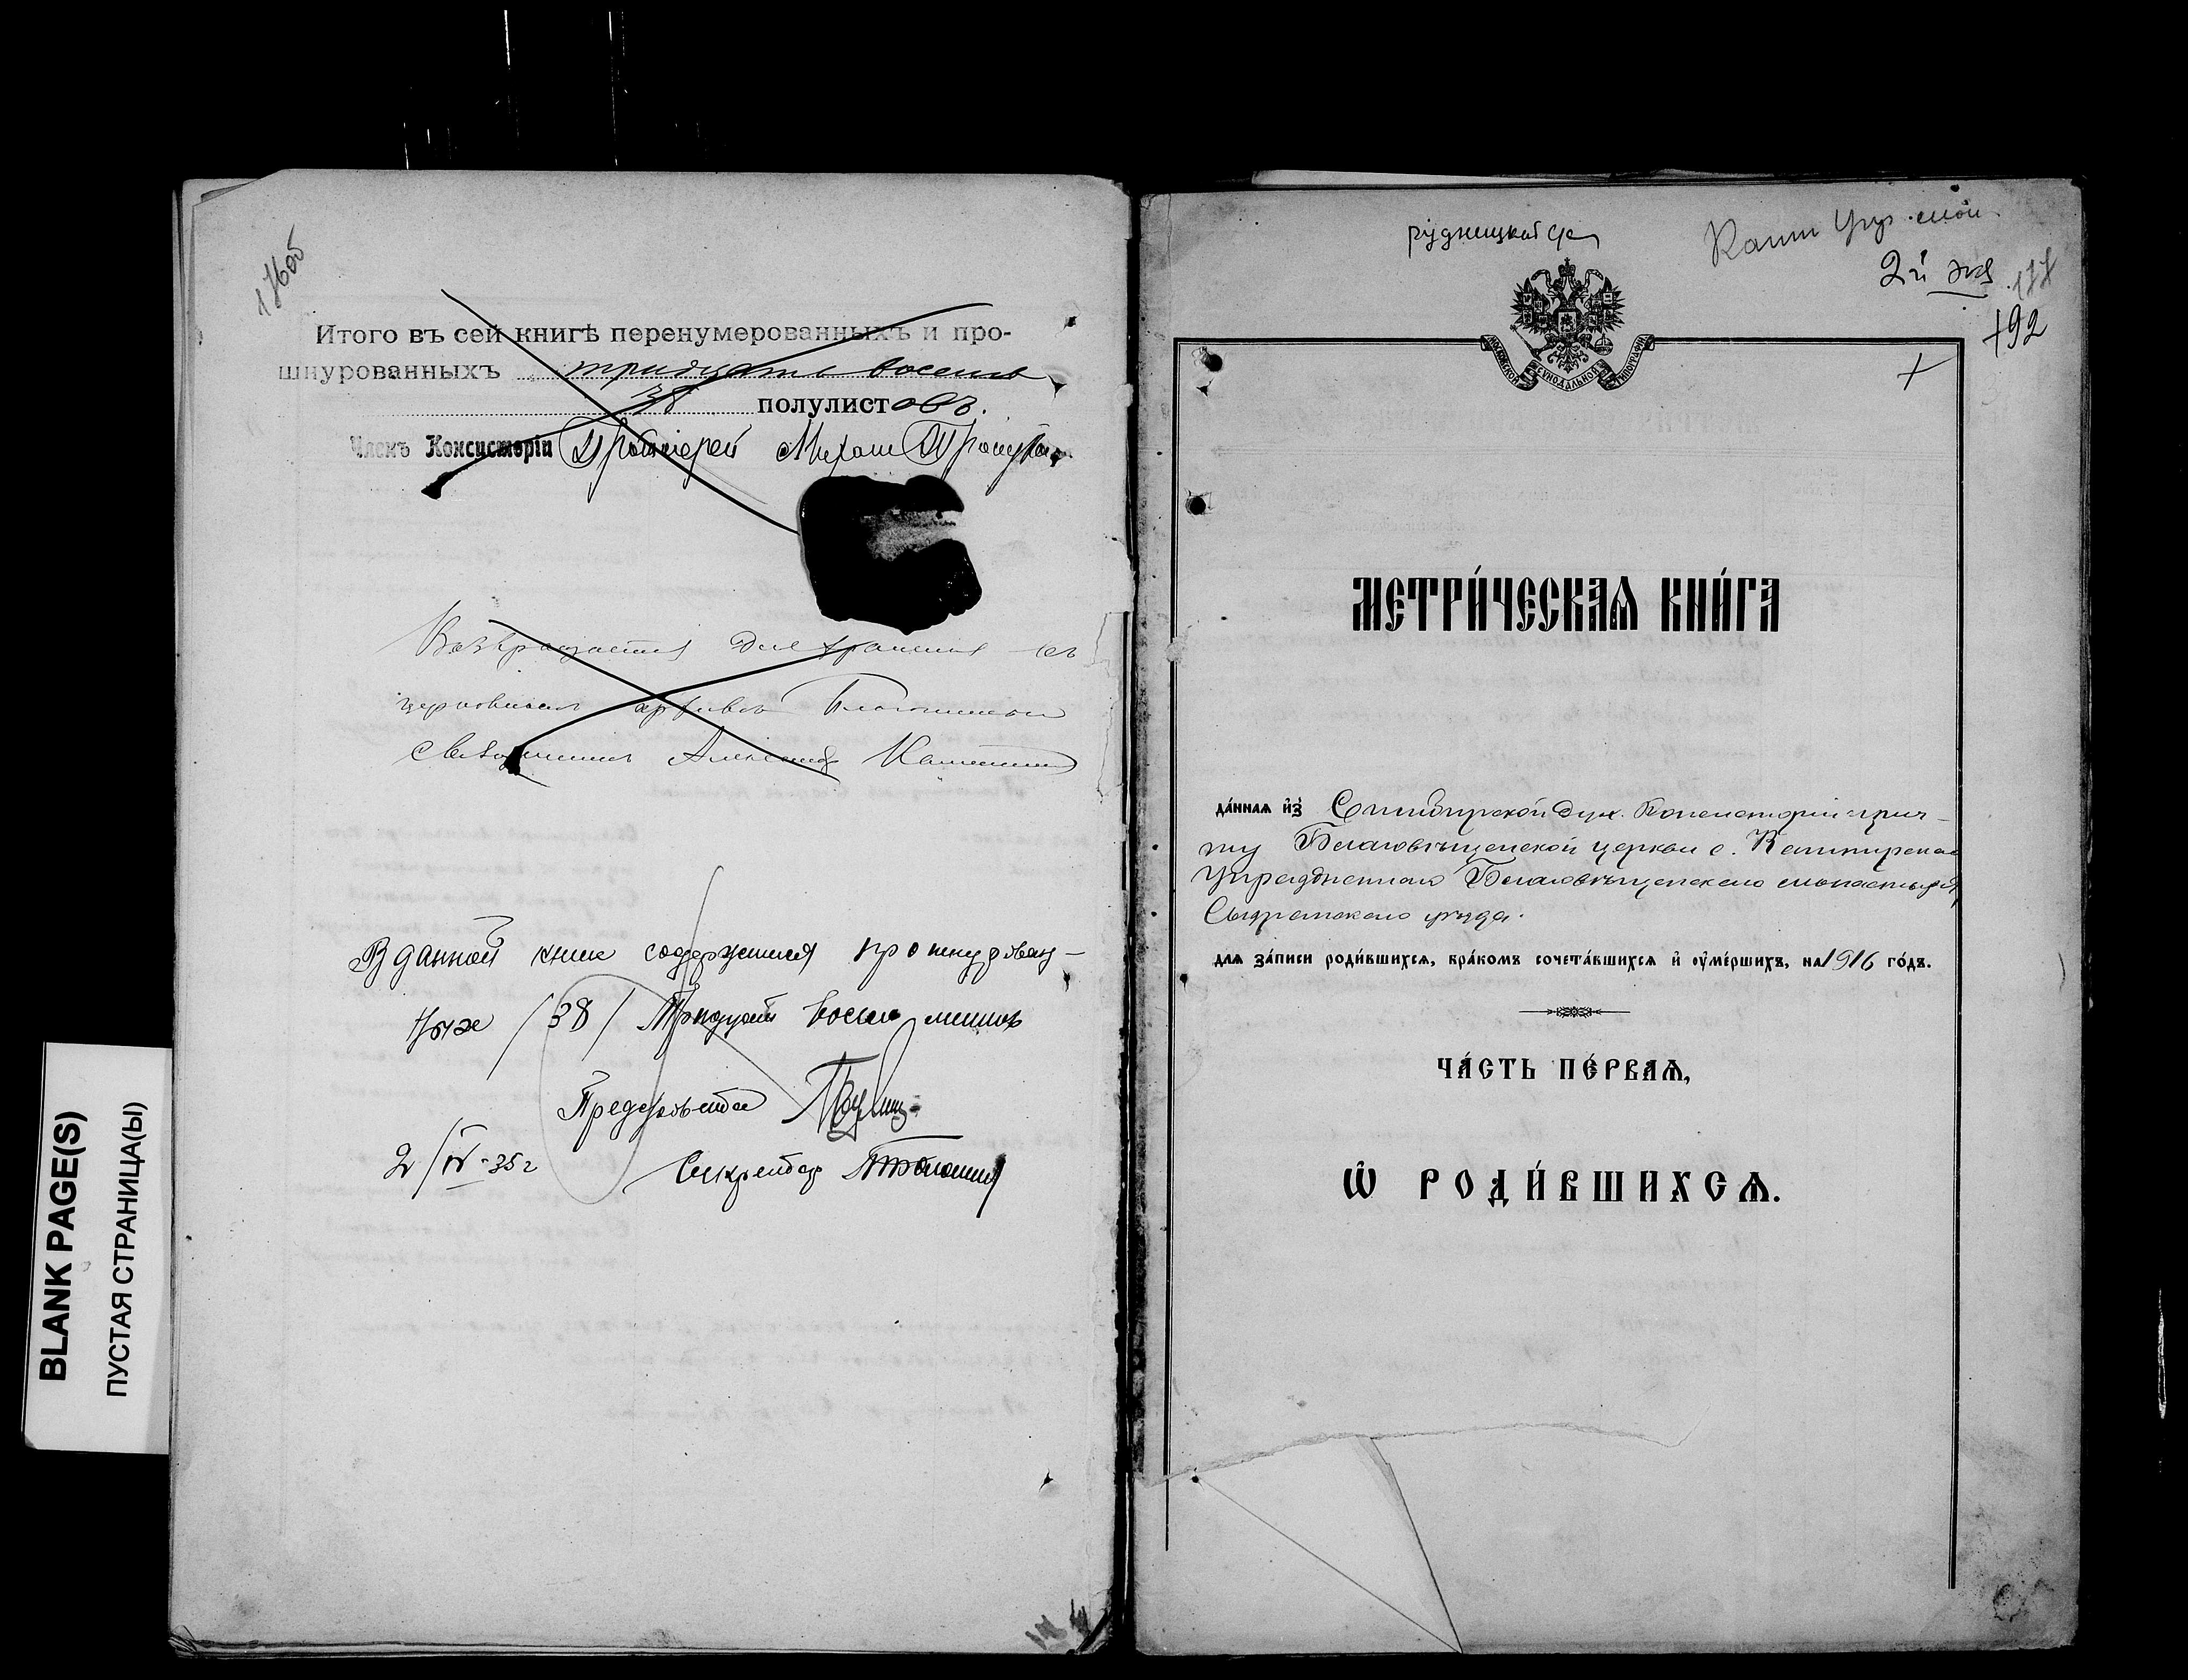 176об
Итого въ сей книгѣ перенумерованныхъ и про-
шнурованныхъ тридцать восемь
38 полулистовъ.
Членъ Консисторіи Протоіерей Михаил
Возвращается для храненія въ
церковном архивѣ Благочинный
священникъ
В данной книге содержится прошнурован-
ных /38/ Тридцать восемь листов
Председатель
2/IV-35г Секретарь
BLANK PAGE(S)
ПУСТАЯ СТРАНИЦА(Ы)
2й экз
177
192
МОСКОВСКОЙ СѴНОДАЛЬНОЙ ТИПОГРАФІИ
МЕТРИ́ЧЕСКАѦ КНИ́ГА
да́ннаѧ и҆з̾ Симбирской Дух. Консисторіи прич-
ту Благовѣщенской церкви с. Кашпирскаго
Упраздненнаго Благовѣщенскаго монастыря,
Сызранскаго уѣзда.
длѧ за́писи роди́вшихсѧ, бра́комъ сочета́вшихсѧ и҆ оу҆ме́ршихъ, на 1916 го́дъ.
ЧА́СТЬ ПЕ́РВАѦ,
Ѽ РОДИ́ВШИХСѦ.